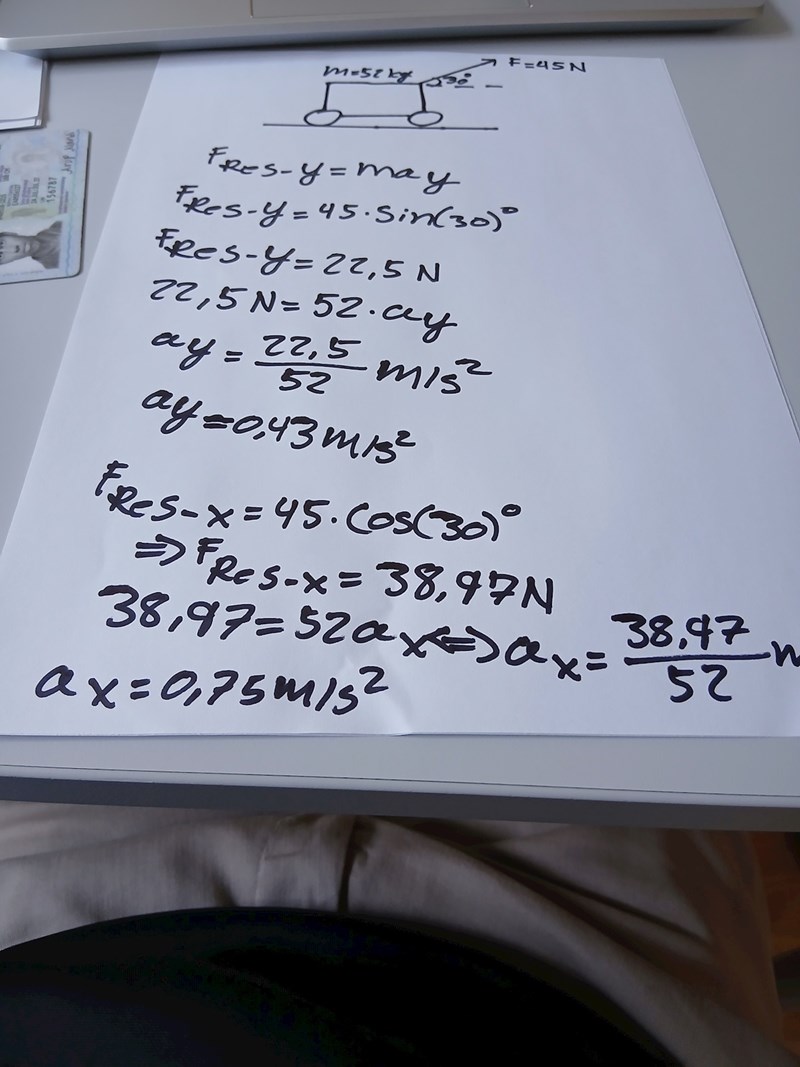 m=52kg F=45N
30°
FRes-y=may
FRes-y=45·Sin(30)°
FRes-y=22,5N
22,5N=52·ay
ay=22,5/52 m/s²
ay=0,43m/s²
FRes-x=45·Cos(30)°
⇒FRes-x=38,97N
38,97=52ax⇔ax=38,97/52 m
ax=0,75m/s²